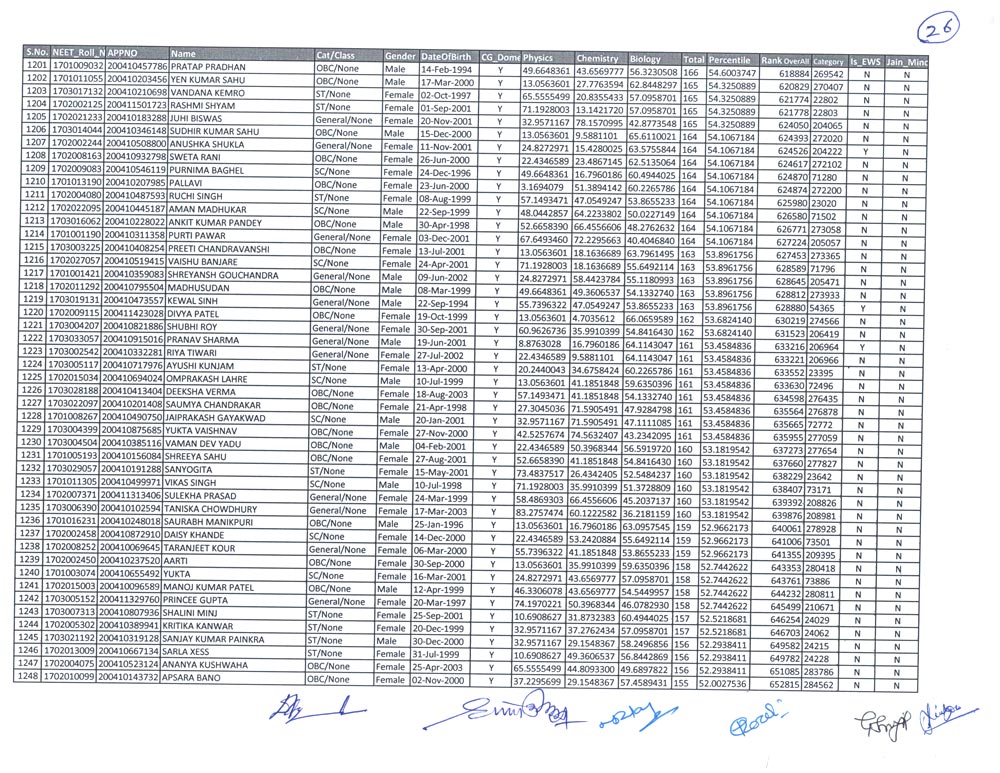 26
S.No. NEET_Roll_N APPNO Name Cat/Class Gender DateOfBirth CG_Dom Physics Chemistry Biology Total Percentile Rank OverAll Category Is_EWS Jain_Minc
1201 1701009032 200410457786 PRATAP PRADHAN OBC/None Male 14-Feb-1994 Y 49.6648361 43.6569777 56.3230508 166 54.6003747 618884 269542 N N
1202 1701011055 200410203456 YEN KUMAR SAHU OBC/None Male 17-Mar-2000 Y 13.0563601 27.7763594 62.8448297 165 54.3250889 620829 270407 N N
1203 1703017132 200410210698 VANDANA KEMRO ST/None Female 02-Oct-1997 Y 65.5555499 20.8355433 57.0958701 165 54.3250889 621774 22802 N N
1204 1702002125 200411501723 RASHMI SHYAM ST/None Female 01-Sep-2001 Y 71.1928003 13.1421720 57.0958701 165 54.3250889 621778 22803 N N
1205 1702021233 200410183288 JUHI BISWAS General/None Female 20-Nov-2001 Y 32.9571167 78.1570995 42.8773548 165 54.3250889 624050 204065 N N
1206 1703014044 200410346148 SUDHIR KUMAR SAHU OBC/None Male 15-Dec-2000 Y 13.0563601 9.5881101 65.6110021 164 54.1067184 624393 272020 N N
1207 1702002244 200410508800 ANUSHKA SHUKLA General/None Female 11-Nov-2001 Y 24.8272971 15.4280025 63.5755844 164 54.1067184 624526 204222 Y N
1208 1702008163 200410932798 SWETA RANI OBC/None Female 26-Jun-2000 Y 22.4346589 23.4867145 62.5135064 164 54.1067184 624617 272102 N N
1209 1702009083 200410546119 PURNIMA BAGHEL SC/None Female 24-Dec-1996 Y 49.6648361 16.7960186 60.4944025 164 54.1067184 624870 71280 N N
1210 1701013190 200410207985 PALLAVI OBC/None Female 23-Jun-2000 Y 3.1694079 51.3894142 60.2265786 164 54.1067184 624874 272200 N N
1211 1702004080 200410487593 RUCHI SINGH ST/None Female 08-Aug-1999 Y 57.1493471 47.0549247 53.8655233 164 54.1067184 625980 23020 N N
1212 1702022095 200410445187 AMAN MADHUKAR SC/None Male 22-Sep-1999 Y 48.0442857 64.2233802 50.0227149 164 54.1067184 626580 71502 N N
1213 1703016062 200410228022 ANKIT KUMAR PANDEY OBC/None Male 30-Apr-1998 Y 52.6658390 66.4556606 48.2762632 164 54.1067184 626771 273058 N N
1214 1701001190 200410311358 PURTI PAWAR General/None Female 03-Dec-2001 Y 67.6493460 72.2295663 40.4046840 164 54.1067184 627224 205057 N N
1215 1703003225 200410408254 PREETI CHANDRAVANSHI OBC/None Female 13-Jul-2001 Y 13.0563601 18.1636689 63.7961495 163 53.8961756 627453 273365 N N
1216 1702027057 200410519415 VAISHU BANJARE SC/None Female 24-Apr-2001 Y 71.1928003 18.1636689 55.6492114 163 53.8961756 628589 71796 N N
1217 1701001421 200410359083 SHREYANSH GOUCHANDRA General/None Male 09-Jun-2002 Y 24.8272971 58.4423784 55.1180993 163 53.8961756 628645 205471 N N
1218 1702011292 200410795504 MADHUSUDAN OBC/None Male 08-Mar-1999 Y 49.6648361 49.3606537 54.1332740 163 53.8961756 628812 273933 N N
1219 1703019131 200410473557 KEWAL SINH General/None Male 22-Sep-1994 Y 55.7396322 47.0549247 53.8655233 163 53.8961756 628880 54365 Y N
1220 1702009115 200411423028 DIVYA PATEL OBC/None Female 19-Oct-1999 Y 13.0563601 4.7035612 66.0659589 162 53.6824140 630219 274566 N N
1221 1703004207 200410821886 SHUBHI ROY General/None Female 30-Sep-2001 Y 60.9626736 35.9910399 54.8416430 162 53.6824140 631523 206419 N N
1222 1703033057 200410915016 PRANAV SHARMA General/None Male 19-Jun-2001 Y 8.8763028 16.7960186 64.1143047 161 53.4584836 633216 206964 Y N
1223 1703002542 200410332281 RIYA TIWARI General/None Female 27-Jul-2002 Y 22.4346589 9.5881101 64.1143047 161 53.4584836 633221 206966 N N
1224 1703005117 200410717976 AYUSHI KUNJAM ST/None Female 13-Apr-2000 Y 20.2440043 34.6758424 60.2265786 161 53.4584836 633552 23395 N N
1225 1702015034 200410694024 OMPRAKASH LAHRE SC/None Male 10-Jul-1999 Y 13.0563601 41.1851848 59.6350396 161 53.4584836 633630 72496 N N
1226 1703028188 200410413404 DEEKSHA VERMA OBC/None Female 18-Aug-2003 Y 57.1493471 41.1851848 54.1332740 161 53.4584836 634598 276435 N N
1227 1703022097 200410201408 SAUMYA CHANDRAKAR OBC/None Female 21-Apr-1998 Y 27.3045036 71.5905491 47.9284798 161 53.4584836 635564 276878 N N
1228 1701008267 200410490750 JAIPRAKASH GAYAKWAD SC/None Male 20-Jan-2001 Y 32.9571167 71.5905491 47.1111085 161 53.4584836 635665 72772 N N
1229 1703004399 200410875685 YUKTA VAISHNAV OBC/None Female 27-Nov-2000 Y 42.5257674 74.5632407 43.2342095 161 53.4584836 635955 277059 N N
1230 1703004504 200410385116 VAMAN DEV YADU OBC/None Male 04-Feb-2001 Y 22.4346589 50.3968344 56.5919720 160 53.1819542 637273 277654 N N
1231 1701005193 200410156084 SHREEYA SAHU OBC/None Female 27-Aug-2001 Y 52.6658390 41.1851848 54.8416430 160 53.1819542 637660 277827 N N
1232 1703029057 200410191288 SANYOGITA ST/None Female 15-May-2001 Y 73.4837517 26.4342405 52.5484237 160 53.1819542 638229 23642 N N
1233 1701011305 200410499971 VIKAS SINGH SC/None Male 10-Jul-1998 Y 71.1928003 35.9910399 51.3728809 160 53.1819542 638407 73171 N N
1234 1702007371 200411313406 SULEKHA PRASAD General/None Female 24-Mar-1999 Y 58.4869303 66.4556606 45.2037137 160 53.1819542 639392 208826 N N
1235 1703006390 200410102594 TANISKA CHOWDHURY General/None Female 17-Mar-2003 Y 83.2757474 60.1222582 36.2181159 160 53.1819542 639876 208981 N N
1236 1701016231 200410248018 SAURABH MANIKPURI OBC/None Male 25-Jan-1996 Y 13.0563601 16.7960186 63.0957545 159 52.9662173 640061 278928 N N
1237 1702002458 200410872910 DAISY KHANDE SC/None Female 14-Dec-2000 Y 22.4346589 53.2420884 55.6492114 159 52.9662173 641006 73501 N N
1238 1702008252 200410069645 TARANJEET KOUR General/None Female 06-Mar-2000 Y 55.7396322 41.1851848 53.8655233 159 52.9662173 641355 209395 N N
1239 1702002450 200410237520 AARTI OBC/None Female 30-Sep-2000 Y 13.0563601 35.9910399 59.6350396 158 52.7442622 643353 280418 N N
1240 1701003074 200410655492 YUKTA SC/None Female 16-Mar-2001 Y 24.8272971 43.6569777 57.0958701 158 52.7442622 643761 73886 N N
1241 1702015003 200410096589 MANOJ KUMAR PATEL OBC/None Male 12-Apr-1999 Y 46.3306078 43.6569777 54.5449957 158 52.7442622 644232 280811 N N
1242 1703005152 200411329760 PRINCEE GUPTA General/None Female 20-Mar-1997 Y 74.1970221 50.3968344 46.0782930 158 52.7442622 645499 210671 N N
1243 1703007313 200410807936 SHALINI MINJ ST/None Female 25-Sep-2001 Y 10.6908627 31.8732383 60.4944025 157 52.5218681 646254 24029 N N
1244 1702005302 200410389941 KRITIKA KANWAR ST/None Female 20-Dec-1999 Y 32.9571167 37.2762434 57.0958701 157 52.5218681 646703 24062 N N
1245 1703021192 200410319128 SANJAY KUMAR PAINKRA ST/None Male 30-Dec-2000 Y 32.9571167 29.1548367 58.2496856 156 52.2938411 649582 24215 N N
1246 1702013009 200410667134 SARLA XESS ST/None Female 31-Jul-1999 Y 10.6908627 49.3606537 56.8442869 156 52.2938411 649782 24228 N N
1247 1702004075 200410523124 ANANYA KUSHWAHA OBC/None Female 25-Apr-2003 Y 65.5555499 44.8093300 49.6897822 156 52.2938411 651085 283786 N N
1248 1702010099 200410143732 APSARA BANO OBC/None Female 02-Nov-2000 Y 37.2295699 29.1548367 57.4589431 155 52.0027536 652815 284562 N N